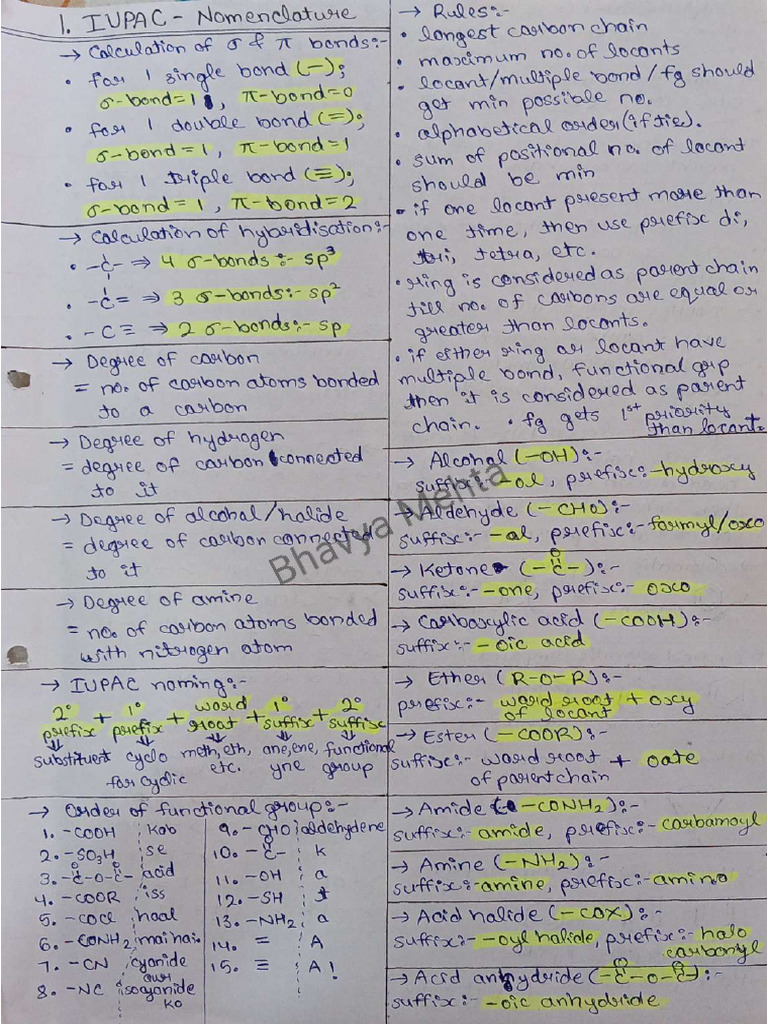 1. IUPAC - Nomenclature
→ Calculation of σ & π bonds:-
• for 1 single bond (—);
σ-bond=1, π-bond=0
• for 1 double bond (=);
σ-bond=1, π-bond=1
• for 1 triple bond (≡);
σ-bond=1, π-bond=2
→ Calculation of hybridisation:-
• -C- ⇒ 4 σ-bonds:- sp³
• -C= ⇒ 3 σ-bonds:- sp²
• -C≡ ⇒ 2 σ-bonds:- sp
→ Degree of carbon
= no. of carbon atoms bonded
to a carbon
→ Degree of hydrogen
= degree of carbon connected
to it
→ Degree of alcohal/halide
= degree of carbon connected
to it
→ Degree of amine
= no. of carbon atoms bonded
with nitrogen atom
→ IUPAC naming:-
2° prefix + 1° prefix + word root + 1° suffix + 2° suffix
substituent cyclo meth, eth, ane, ene, functional
for cyclic etc. yne group
→ Order of functional group:-
1. -COOH kab
2. -SO3H se
3. -C-O-C- acid
O O
4. -COOR iss
5. -COCl haal
6. -CONH2 mai hai
7. -CN cyanide
aur
8. -NC isocyanide
ko
9. -CHO aldehydene
10. -C- k
O
11. -OH a
12. -SH
13. -NH2 a
14. = A
15. ≡ A!
→ Rules:-
• longest carbon chain
• maximum no. of locants
• locant/multiple bond/fg should
get min possible no.
• alphabetical order (if tie).
• sum of positional no. of locant
should be min
• if one locant present more than
one time, then use prefix di,
tri, tetra, etc.
• ring is considered as parent chain
till no. of carbons are equal or
greater than locants.
• if either ring or locant have
multiple bond, functional grp
then it is considered as parent
chain. • fg gets 1st priority
than locant.
→ Alcohal (-OH):-
suffix:- -ol, prefix:- -hydroxy
→ Aldehyde (-CHO):-
suffix:- -al, prefix:- -formyl/oxo
→ Ketone (-C-):-
O
suffix:- -one, prefix:- oxo
→ Carboxylic acid (-COOH):-
suffix:- -oic acid
→ Ether (R-O-R):-
prefix:- word root + oxy
of locant
→ Ester (-COOR):-
suffix:- word root + oate
of parent chain
→ Amide (-CONH2):-
suffix:- amide, prefix:- carbamoyl
→ Amine (-NH2):-
suffix:- amine, prefix:- amino
→ Acid halide (-COX):-
suffix:- -oyl halide, prefix:- halo
carbonyl
→ Acid anhydride (-C-O-C-):-
O O
suffix:- -oic anhydride
Bhavya Mehta